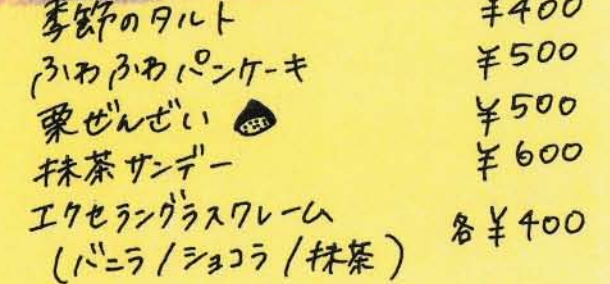 季節のタルト ¥400
ふわふわパンケーキ ¥500
栗ぜんざい ¥500
抹茶サンデー ¥600
エクセラングラスクレーム 各¥400
(バニラ/ショコラ/抹茶)